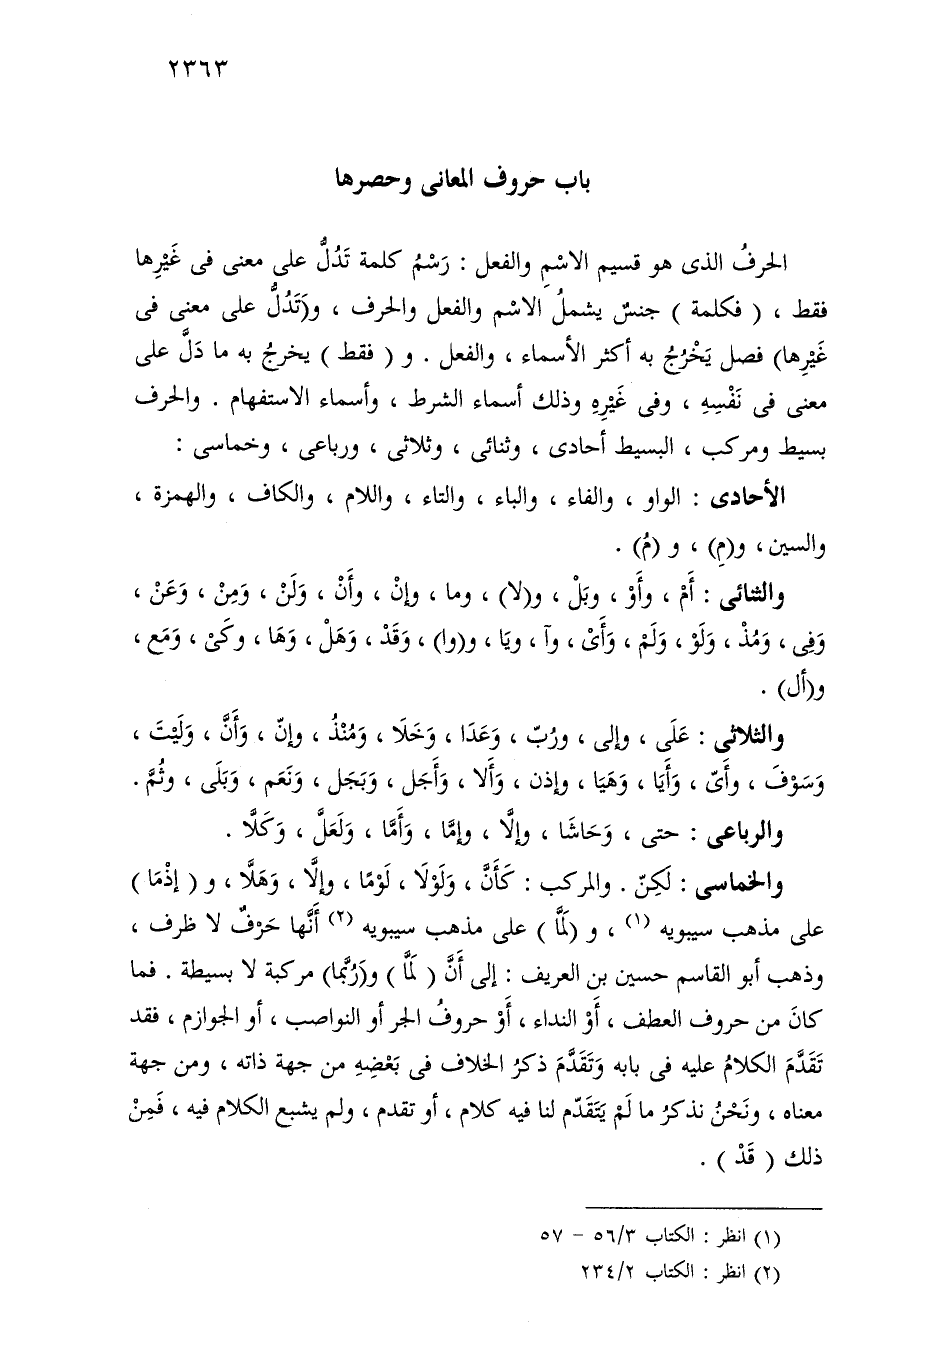 ٢٣٦٣
باب حروف المعانى وحصرها
الحرفُ الذى هو قسيم الاسْمِ والفعل : رَسْمُ كلمة تَدُلُّ على معنى فى غَيْرِها
فقط ، ( فكلمة ) جنسٌ يشملُ الاسْم والفعل والحرف ، و(تَدُلُّ على معنى فى
غَيْرِها) فصل يَخْرُجُ به أكثر الأسماء ، والفعل . و ( فقط ) يخرجُ به ما دَلَّ على
معنى فى نَفْسِهِ ، وفى غَيْرِهِ وذلك أسماء الشرط ، وأسماء الاستفهام . والحرف
بسيط ومركب ، البسيط أحادى ، وثنائى ، وثلاثى ، ورباعى ، وخماسى :
الأحادى : الواو ، والفاء ، والباء ، والتاء ، واللام ، والكاف ، والهمزة ،
والسين، و(مِ) ، و (مُ) .
والثنائى : أَمْ ، وأَوْ ، وبَلْ ، و(لا) ، وما ، وإنْ ، وأَنْ ، وَلَنْ ، وَمِنْ ، وَعَنْ ،
وَفِى ، وَمُذْ ، وَلَوْ ، وَلَمْ ، وَأَىْ ، وآ ، ويَا ، و(وا) ، وَقَدْ ، وَهَلْ ، وَهَا ، وكَىْ ، وَمَع ،
و(أل) .
والثلاثى : عَلَى ، وإلى ، ورُبّ ، وَعَدَا ، وَخَلَا ، وَمُنْذُ ، وإنّ ، وَأَنَّ ، وَلَيْتَ ،
وَسَوْفَ ، وأَىّ ، وَأَيَا ، وَهَيَا ، وإذن ، وَأَلا ، وَأَجَل ، وَبَجَل ، وَنَعَم ، وَبَلَى ، وثُمَّ .
والرباعى : حتى ، وَحَاشَا ، وإلَّا ، وإمَّا ، وَأَمَّا ، وَلَعَلَّ ، وَكَلَّا .
والخماسى : لَكِنّ . والمركب : كَأَنَّ ، وَلَوْلَا ، لَوْمَا ، وإلَّا ، وَهَلَّا ، و ( إذْمَا )
على مذهب سيبويه (١) ، و (لَمَّا ) على مذهب سيبويه (٢) أَنَّها حَرْفٌ لا ظرف ،
وذهب أبو القاسم حسين بن العريف : إلى أَنَّ ( لَمَّا ) و(رُبَّما) مركبة لا بسيطة . فما
كانَ من حروف العطف ، أَوْ النداء ، أَوْ حروفُ الجر أو النواصب ، أو الجوازم ، فقد
تَقَدَّمَ الكلامُ عليه فى بابه وَتَقَدَّمَ ذكرُ الخلاف فى بَعْضِهِ من جهة ذاته ، ومن جهة
معناه ، ونَحْنُ نذكرُ ما لَمْ يَتَقَدّم لنا فيه كلام ، أو تقدم ، ولم يشبع الكلام فيه ، فَمِنْ
ذلك ( قَدْ ) .
(١) انظر : الكتاب ٥٦/٣ – ٥٧
(٢) انظر : الكتاب ٢٣٤/٢